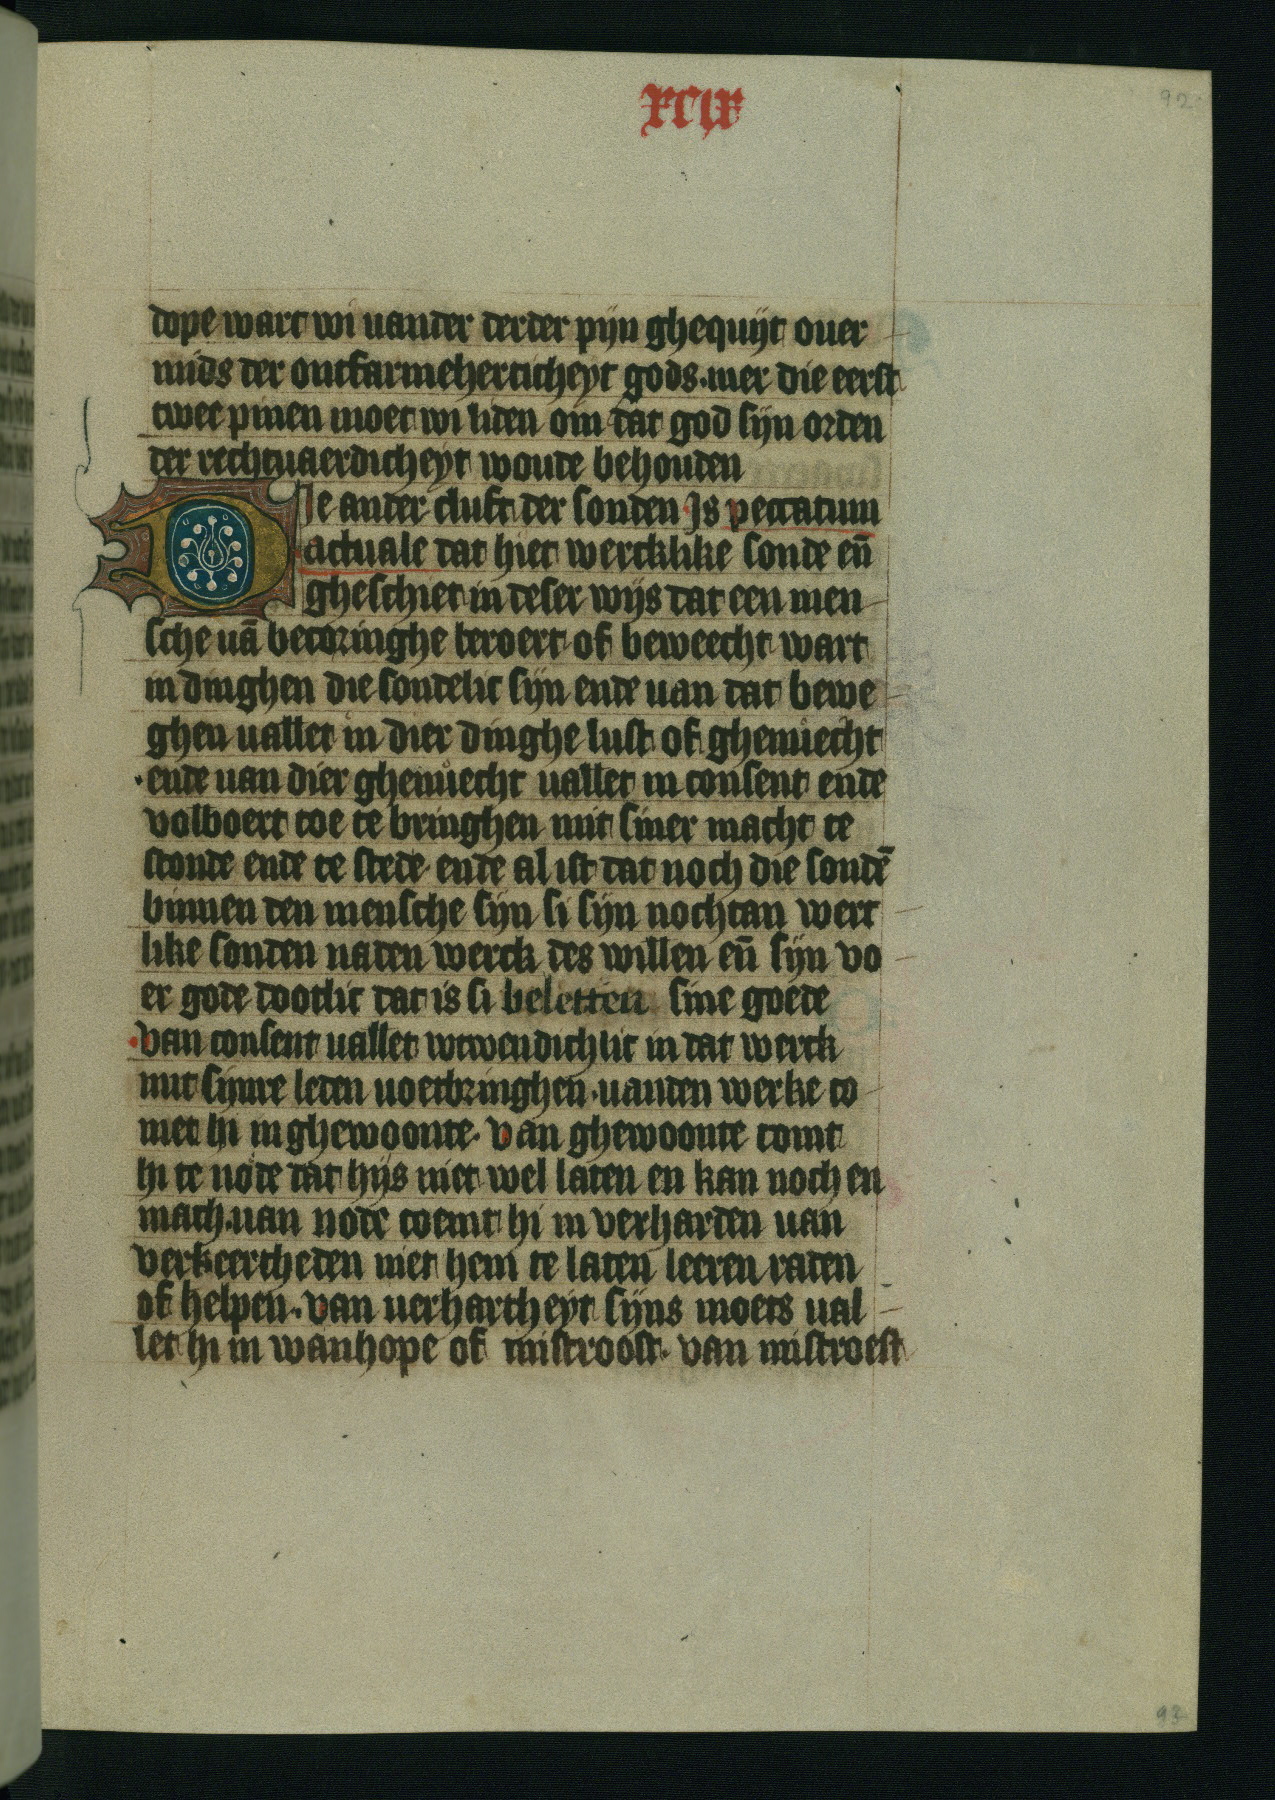 xcix
92
dope wart wi vander derder pijn ghequijt ouer
mids der ontfarmeherticheyt gods. mer die eerst
twee pinen moet wi liden om dat god sijn orden
der rechtuaerdicheyt woude behouden
Die ander cluft der sonden Is peccatum
actuale dat hiet wercklike sonde en̄
gheschiet in deser wijs dat een men
sche uā becoringhe beroert of beweecht wart
in dinghen die sondelic sijn ende uan dat bewe
ghen uallet in dier dinghe lust of ghenuecht
ende uan dier ghenuecht uallet in consent ende
volboert toe te bringhen mit siner macht te
stonde ende te stede. ende al ist dat noch die sondē
binnen den mensche sijn si sijn nochtan werc
like sonden naden werck des willen en̄ sijn vo
er gode dootlic dat is si beletten sine goede
van consent uallet wtwendichlic in dat werck
mit sijnre leden uoertbringhen. uanden werke co
met hi in ghewoonte. van ghewoonte comt
hi te node dat hijs niet wel laten en kan noch en
mach. uan node coemt hi in verharden uan
verkeertheden niet hem te laten leeren raden
of helpen. van uerhartheyt sijns moets ual
let hi in wanhope of mistroost. van mistroest
93